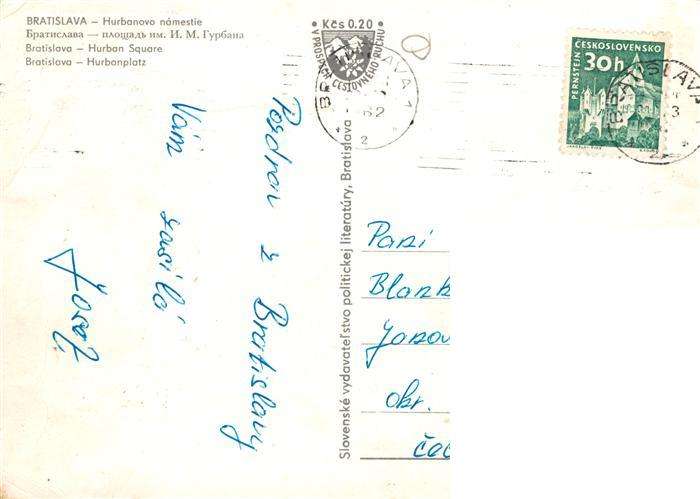 BRATISLAVA – Hurbanovo námestie
Братислава — площадь им. И. М. Гурбана
Bratislava – Hurban Square
Bratislava – Hurbanplatz
Kčs 0.20
CESTOVNÉHO RUCHU
BRATISLAVA 1
62
2
ČESKOSLOVENSKO
30h
PERNŠTEJN
BRATISLAVA
Pozdrav z Bratislavy
Vám zasílá
Slovenské vydavateľstvo politickej literatúry, Bratislava
Paní
Blank
Janov
okr.